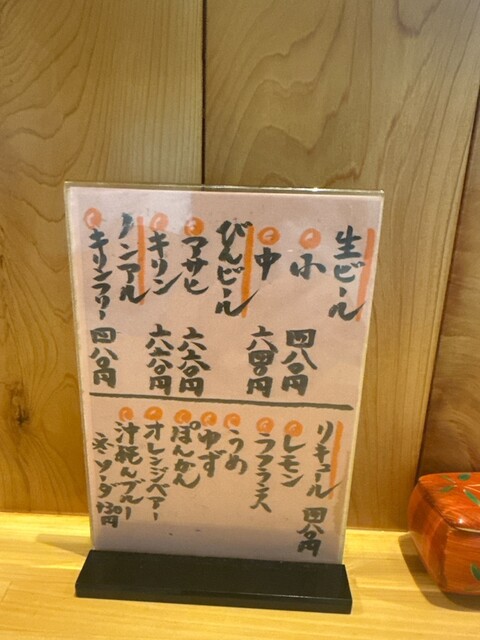 生ビール
小 四八〇円
中 六四〇円
びんビール
アサヒ 六六〇円
キリン 六六〇円
ノンアル
キリンフリー 四八〇円
リキュール 四八〇円
レモン
ラフランス
うめ
ゆず
ぽんかん
オレンジペアー
ブルー
※ソーダ+30円